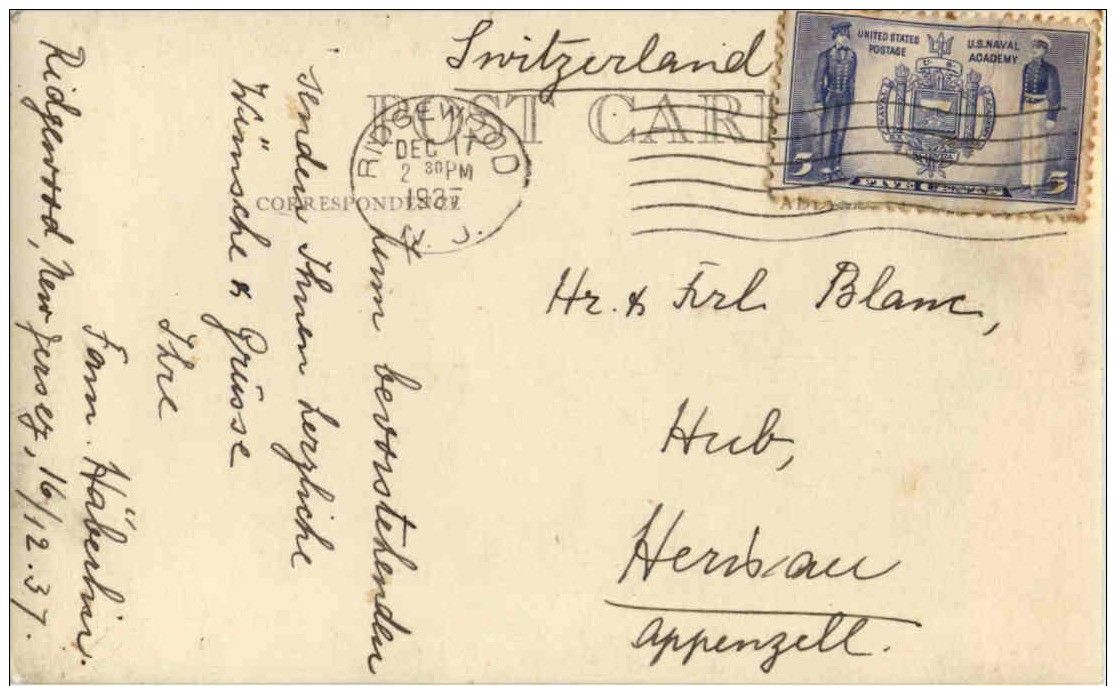 Switzerland
POST CARD
UNITED STATES
POSTAGE
U.S. NAVAL
ACADEMY
5
FIVE CENTS
5
RIDGEWOOD
DEC 17
2 30 PM
1937
N. J.
CORRESPONDENCE
Zum bevorstehenden
senden Ihnen herzliche
Wünsche & Grüsse
Ihre
Fam. Häberlin.
Ridgewood, New Jersey, 16/12.37.
Hr. & Frl. Blanc,
Hub,
Herisau
Appenzell.